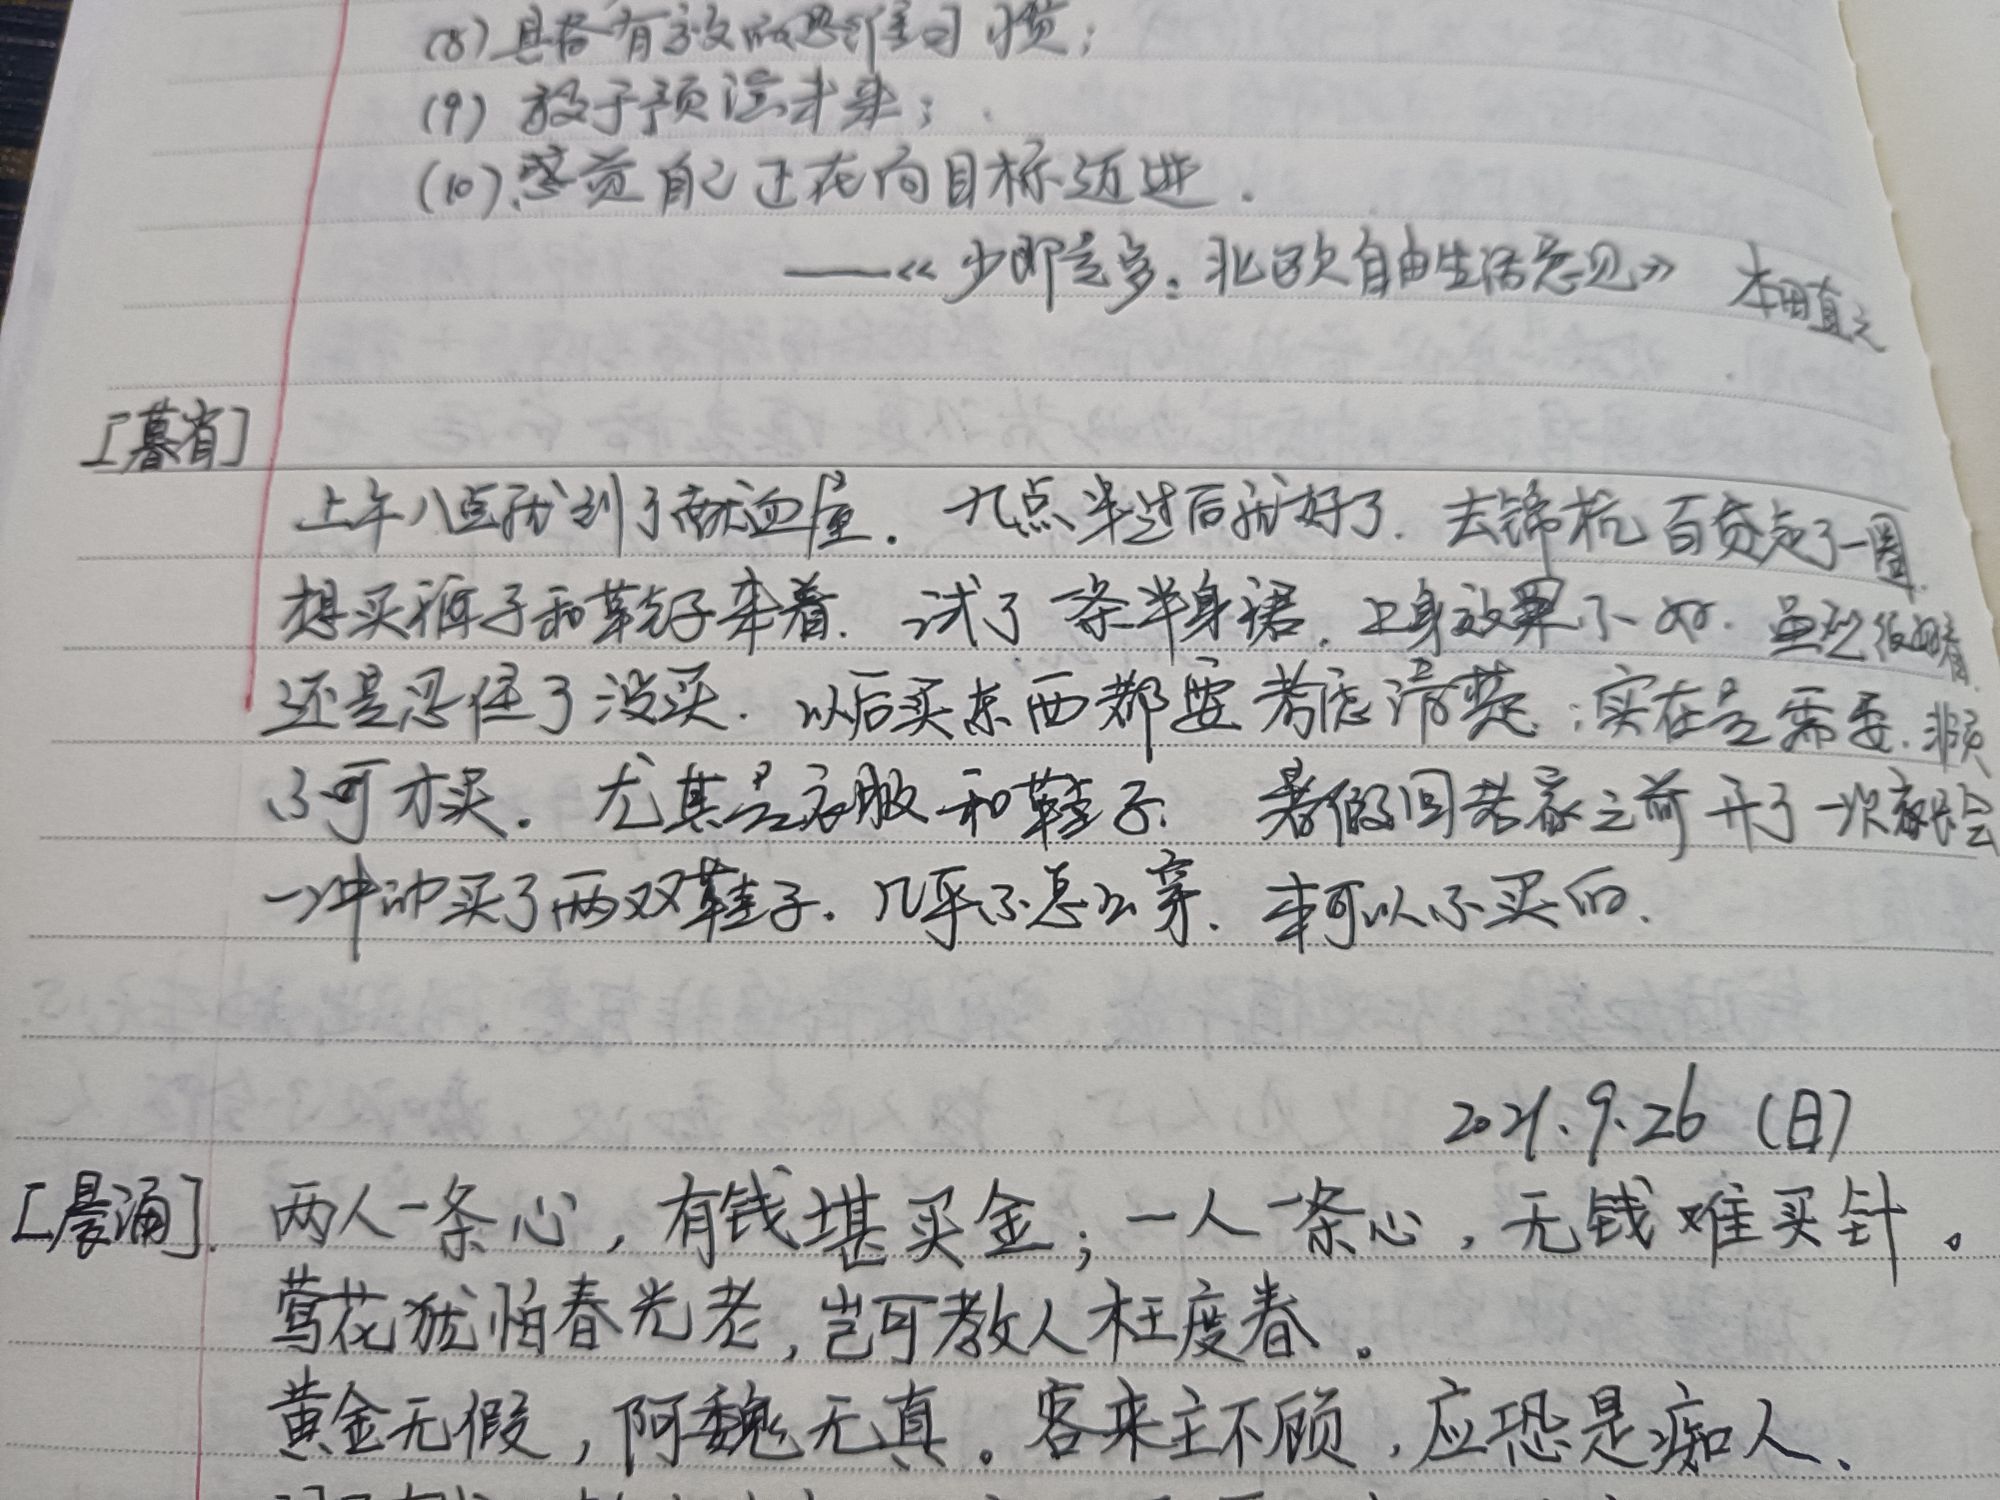 (8) 具备有效的思维习惯；
(9) 敢于预演未来；
(10) 感觉自己正在向目标迈进.
——《少即是多：北欧自由生活意见》 本田直之
[暮省]
上午八点就到了献血屋. 九点半过后就好了. 去锦杭百货走了一圈.
想买裤子和鞋子来着. 试了一条半身裙, 上身效果不好. 虽然很想着
还是忍住了没买. 以后买东西都要考虑清楚：实在是需要. 非买
不可才买. 尤其是衣服和鞋子. 暑假回老家之前开了一次家长会
一冲动买了两双鞋子. 几乎不怎么穿. 本可以不买的.
2021.9.26 (日)
[晨诵] 两人一条心，有钱堪买金；一人一条心，无钱难买针。
莺花犹怕春光老，岂可教人枉度春。
黄金无假，阿魏无真。客来主不顾，应恐是痴人.